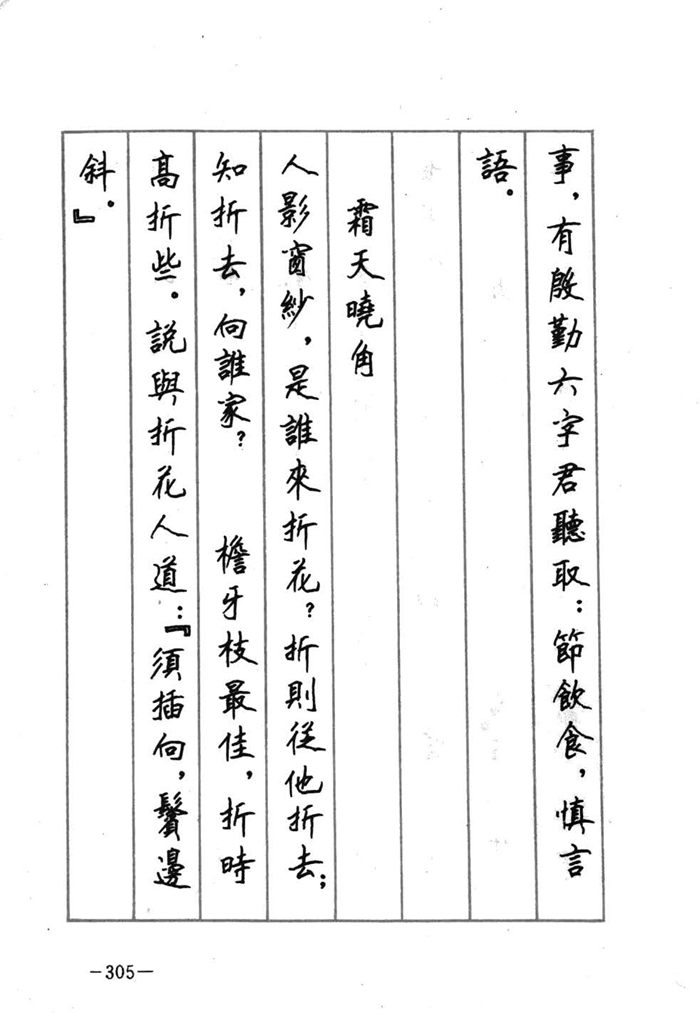 事，有殷勤六字君聽取：節飲食，慎言
語．
霜天曉角
人影窗紗，是誰來折花？折則從他折去；
知折去，向誰家？　檐牙枝最佳，折時
高折些．說與折花人道：『須插向，鬢邊
斜．』
—305—